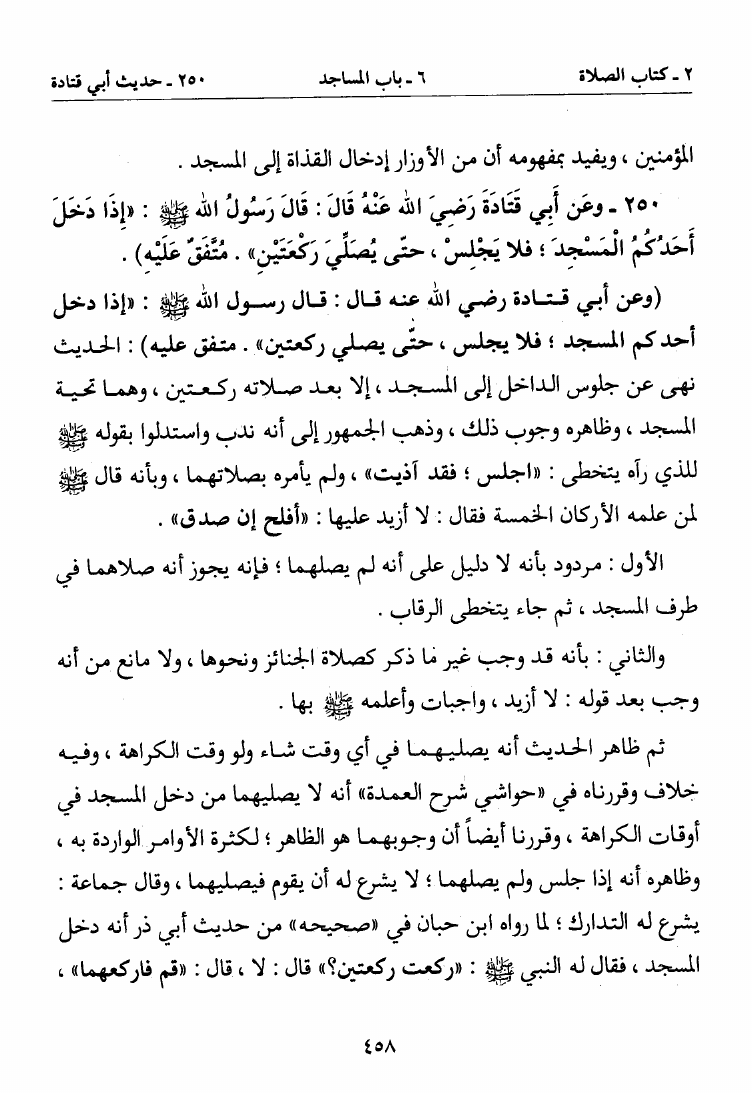 ٢ ـ كتاب الصلاة ٦ ـ باب المساجد ٢٥٠ ـ حديث أبي قتادة
المؤمنين ، ويفيد بمفهومه أن من الأوزار إدخال القذاة إلى المسجد .
٢٥٠ ـ وعَن أَبِي قَتَادَةَ رَضِيَ الله عَنْهُ قَالَ : قَالَ رَسُولُ الله ﷺ : «إِذَا دَخَلَ
أَحَدُكُمُ الْمَسْجِدَ ؛ فلا يَجْلِسْ ، حتّى يُصَلِّيَ رَكْعَتَيْنِ» . مُتَّفَقٌ عَلَيْهِ) .
(وعن أبي قتادة رضي الله عنه قال : قال رسول الله ﷺ : «إذا دخل
أحدكم المسجد ؛ فلا يجلس ، حتّى يصلي ركعتين» . متفق عليه) : الحديث
نهى عن جلوس الداخل إلى المسجد ، إلا بعد صلاته ركعتين ، وهما تحية
المسجد ، وظاهره وجوب ذلك ، وذهب الجمهور إلى أنه ندب واستدلوا بقوله ﷺ
للذي رآه يتخطى : «اجلس ؛ فقد آذيت» ، ولم يأمره بصلاتهما ، وبأنه قال ﷺ
لمن علمه الأركان الخمسة فقال : لا أزيد عليها : «أفلح إن صدق» .
الأول : مردود بأنه لا دليل على أنه لم يصلهما ؛ فإنه يجوز أنه صلاهما في
طرف المسجد ، ثم جاء يتخطى الرقاب .
والثاني : بأنه قد وجب غير ما ذكر كصلاة الجنائز ونحوها ، ولا مانع من أنه
وجب بعد قوله : لا أزيد ، واجبات وأعلمه ﷺ بها .
ثم ظاهر الحديث أنه يصليهما في أي وقت شاء ولو وقت الكراهة ، وفيه
خلاف وقررناه في «حواشي شرح العمدة» أنه لا يصليهما من دخل المسجد في
أوقات الكراهة ، وقررنا أيضاً أن وجوبهما هو الظاهر ؛ لكثرة الأوامر الواردة به ،
وظاهره أنه إذا جلس ولم يصلهما ؛ لا يشرع له أن يقوم فيصليهما ، وقال جماعة :
يشرع له التدارك ؛ لما رواه ابن حبان في «صحيحه» من حديث أبي ذر أنه دخل
المسجد ، فقال له النبي ﷺ : «ركعت ركعتين؟» قال : لا ، قال : «قم فاركعهما» ،
٤٥٨